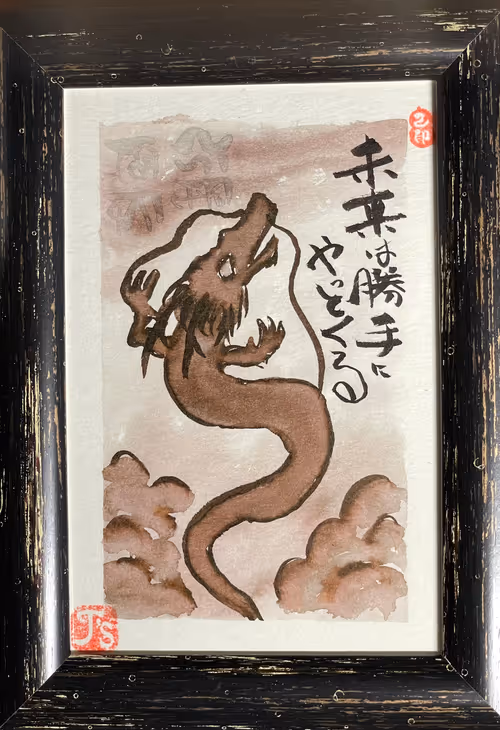 未来は勝手に
やってくる
J's